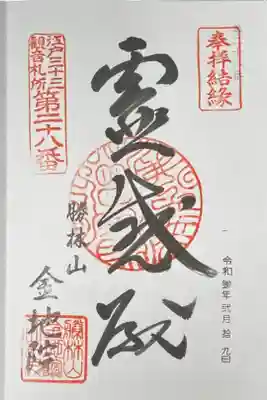 奉拝結縁
令和弐年弐月拾九日
霊感殿
勝林山
金地院
江戸三十三
観音札所
第二十八番
勝林山